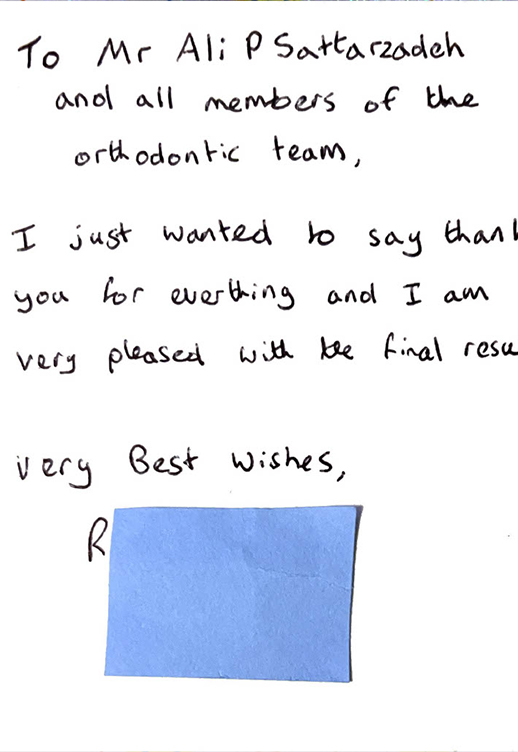 To Mr Ali P Sattarzadeh
and all members of the
orthodontic team,
I just wanted to say thank
you for everthing and I am
very pleased with the final resu
very Best wishes,
R